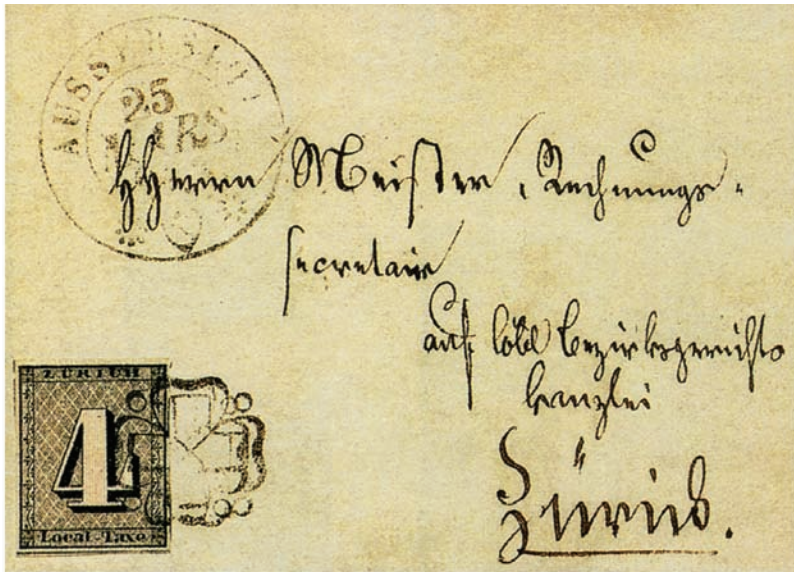 AUSSERSIHL
25
MARS
HHerrn Meister, Rechnungs-
secretair
auf löbl Bezirksgerichts
kanzlei
Zürich.
ZÜRICH
4
Local-Taxe